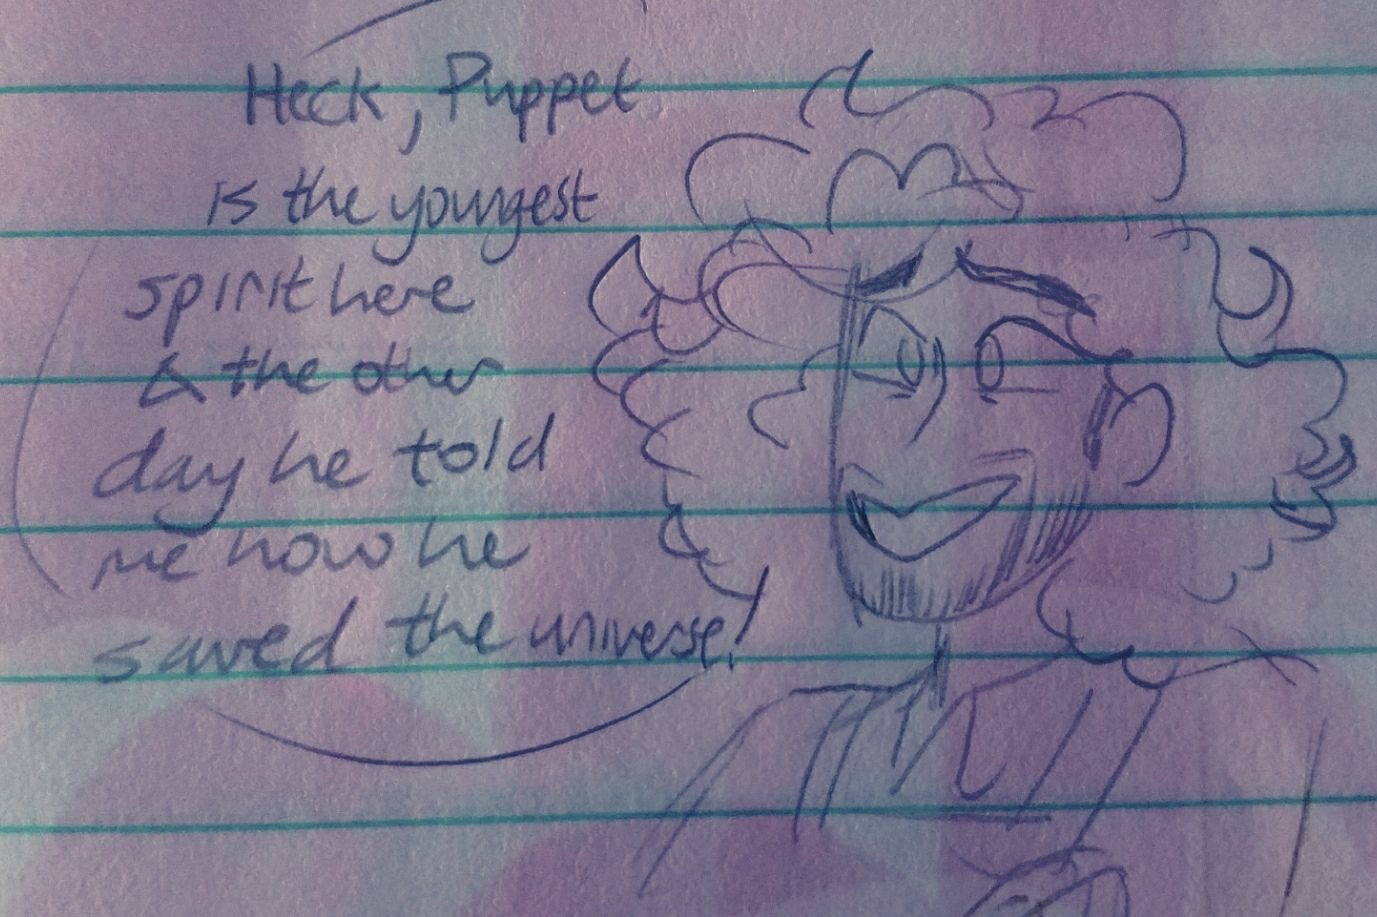 Heck, Puppet
is the youngest
spirit here
& the other
day he told
me how he
saved the universe!